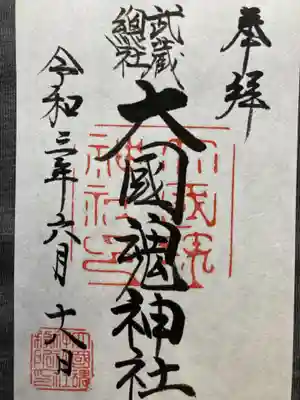 奉拝
武蔵
總社
大國魂神社
令和三年六月十八日